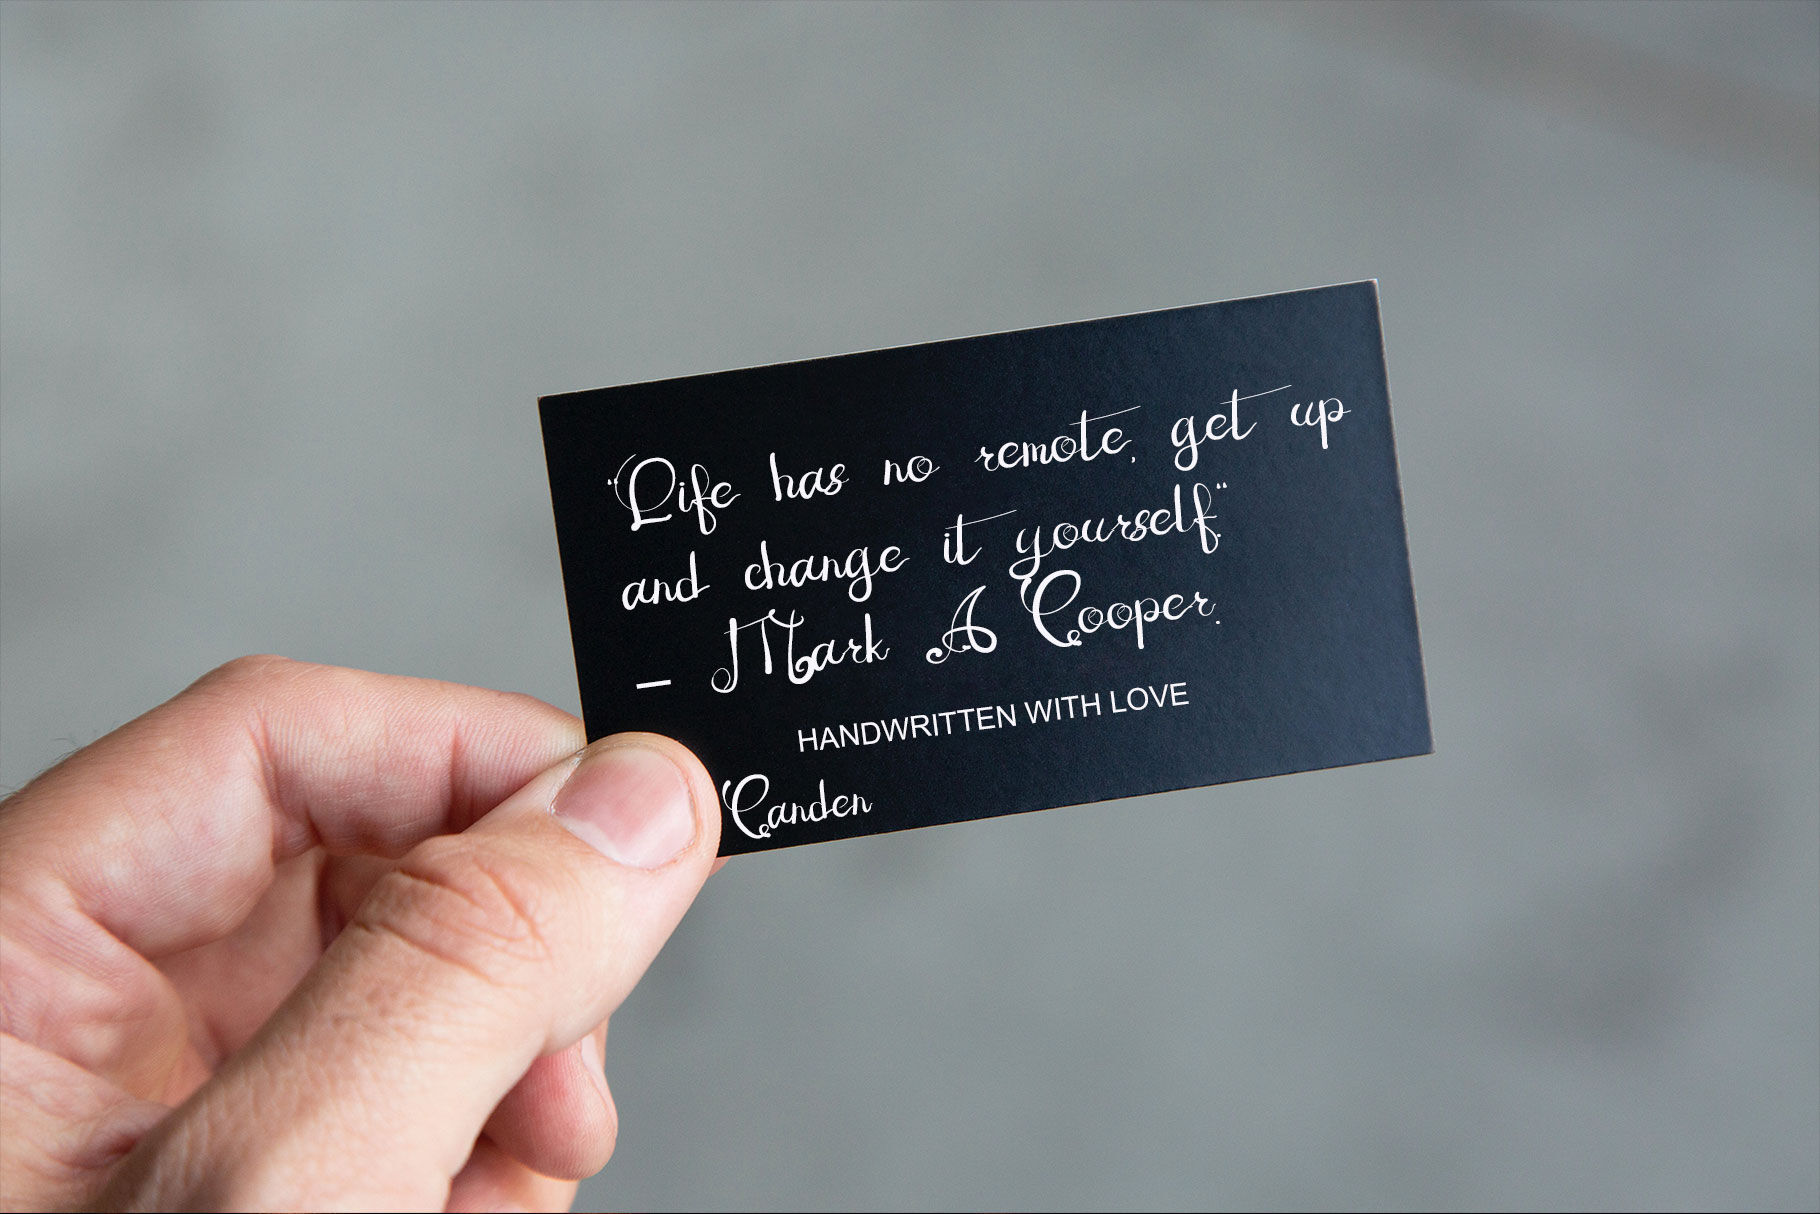 "Life has no remote, get up
and change it yourself."
– Mark A Cooper.
HANDWRITTEN WITH LOVE
Canden